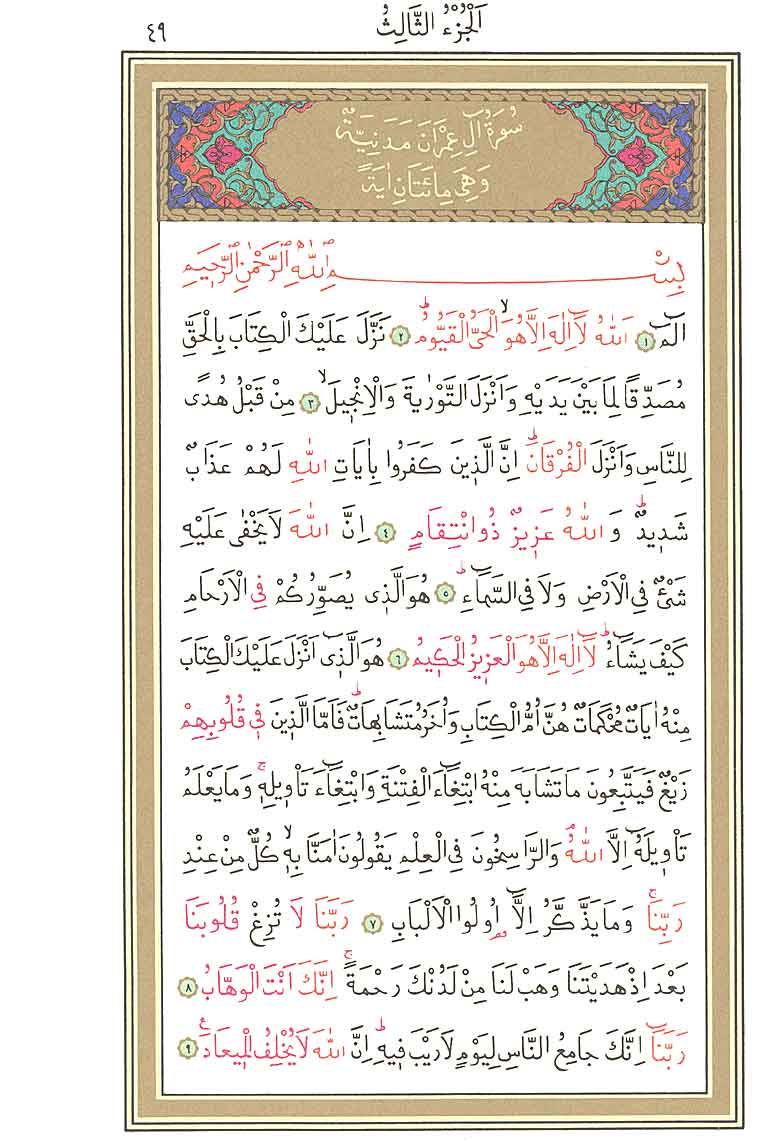 اَلْجُزْءُ الثَّالِثُ
٤٩
سُورَةُ اٰلِ عِمْرٰنَ مَدَنِيَّةٌ
وَهِيَ مِائَتَانِ اٰيَةً
بِسْــــــمِ اللّٰهِ الرَّحْمٰنِ الرَّحِيمِ
الٓمٓ ﴿١﴾ اَللّٰهُ لَٓا اِلٰهَ اِلَّا هُوَۙ الْحَيُّ الْقَيُّومُۜ ﴿٢﴾ نَزَّلَ عَلَيْكَ الْكِتَابَ بِالْحَقِّ
مُصَدِّقًا لِمَا بَيْنَ يَدَيْهِ وَاَنْزَلَ التَّوْرٰيةَ وَالْاِنْجِيلَۙ ﴿٣﴾ مِنْ قَبْلُ هُدًى
لِلنَّاسِ وَاَنْزَلَ الْفُرْقَانَۜ اِنَّ الَّذِينَ كَفَرُوا بِاٰيَاتِ اللّٰهِ لَهُمْ عَذَابٌ
شَدِيدٌۜ وَاللّٰهُ عَزِيزٌ ذُوانْتِقَامٍ ﴿٤﴾ اِنَّ اللّٰهَ لَا يَخْفٰى عَلَيْهِ
شَيْءٌ فِي الْاَرْضِ وَلَا فِي السَّمَٓاءِۜ ﴿٥﴾ هُوَ الَّذِي يُصَوِّرُكُمْ فِي الْاَرْحَامِ
كَيْفَ يَشَٓاءُۜ لَٓا اِلٰهَ اِلَّا هُوَ الْعَزِيزُ الْحَكِيمُ ﴿٦﴾ هُوَ الَّذِٓي اَنْزَلَ عَلَيْكَ الْكِتَابَ
مِنْهُ اٰيَاتٌ مُحْكَمَاتٌ هُنَّ اُمُّ الْكِتَابِ وَاُخَرُ مُتَشَابِهَاتٌۜ فَاَمَّا الَّذِينَ فِي قُلُوبِهِمْ
زَيْغٌ فَيَتَّبِعُونَ مَا تَشَابَهَ مِنْهُ ابْتِغَٓاءَ الْفِتْنَةِ وَابْتِغَٓاءَ تَأْوِيلِهِۚ وَمَا يَعْلَمُ
تَأْوِيلَهُٓ اِلَّا اللّٰهُۢ وَالرَّاسِخُونَ فِي الْعِلْمِ يَقُولُونَ اٰمَنَّا بِهِۙ كُلٌّ مِنْ عِنْدِ
رَبِّنَاۚ وَمَا يَذَّكَّرُ اِلَّٓا اُولُوا الْاَلْبَابِ ﴿٧﴾ رَبَّنَا لَا تُزِغْ قُلُوبَنَا
بَعْدَ اِذْ هَدَيْتَنَا وَهَبْ لَنَا مِنْ لَدُنْكَ رَحْمَةًۚ اِنَّكَ اَنْتَ الْوَهَّابُ ﴿٨﴾
رَبَّنَٓا اِنَّكَ جَامِعُ النَّاسِ لِيَوْمٍ لَا رَيْبَ فِيهِۜ اِنَّ اللّٰهَ لَا يُخْلِفُ الْمِيعَادَ۟ ﴿٩﴾